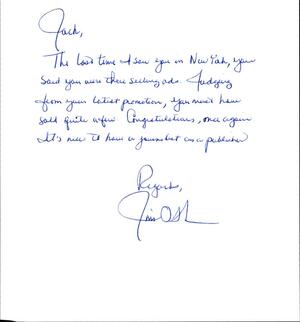 Jack,
The last time I saw you in New York, you
said you were there selling ads. Judging
from your latest promotion, you must have
sold quite a few. Congratulations, once again
It's nice to have a journalist as a publisher
Regards,
Jim